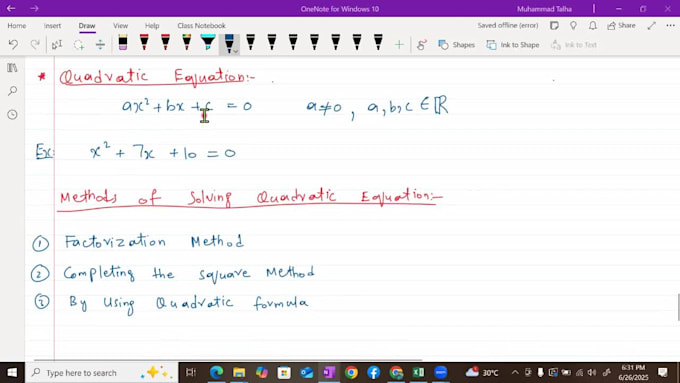 OneNote for Windows 10
Muhammad Talha
Home Insert Draw View Class Notebook
Saved offline (error)
Share
Shapes Ink to Shape Ink to Text
* Quadratic Equation:-
ax² + bx + c = 0 a≠0, a,b,c ∈ ℝ
Ex: x² + 7x + 10 = 0
Methods of Solving Quadratic Equation:-
① Factorization Method
② Completing the square Method
③ By Using Quadratic formula
Type here to search
30°C
6:31 PM
6/26/2025